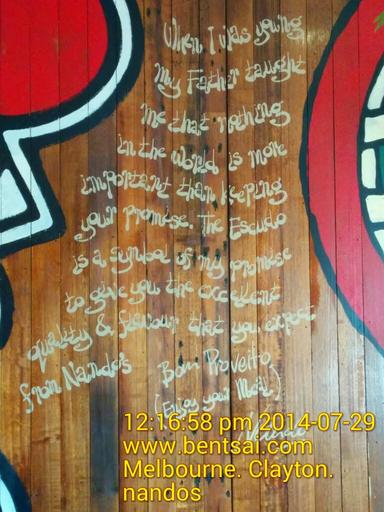 When I was young
my Father taught
me that nothing
in the world is more
important than keeping
your promise. The Escudo
is a symbol of my promise
to give you the excellent
quality & flavour that you expect
from Nando's
Bom Proveito
(Enjoy your Meal)
12:16:58 pm 2014-07-29
www.bentsai.com
Melbourne. Clayton.
nandos